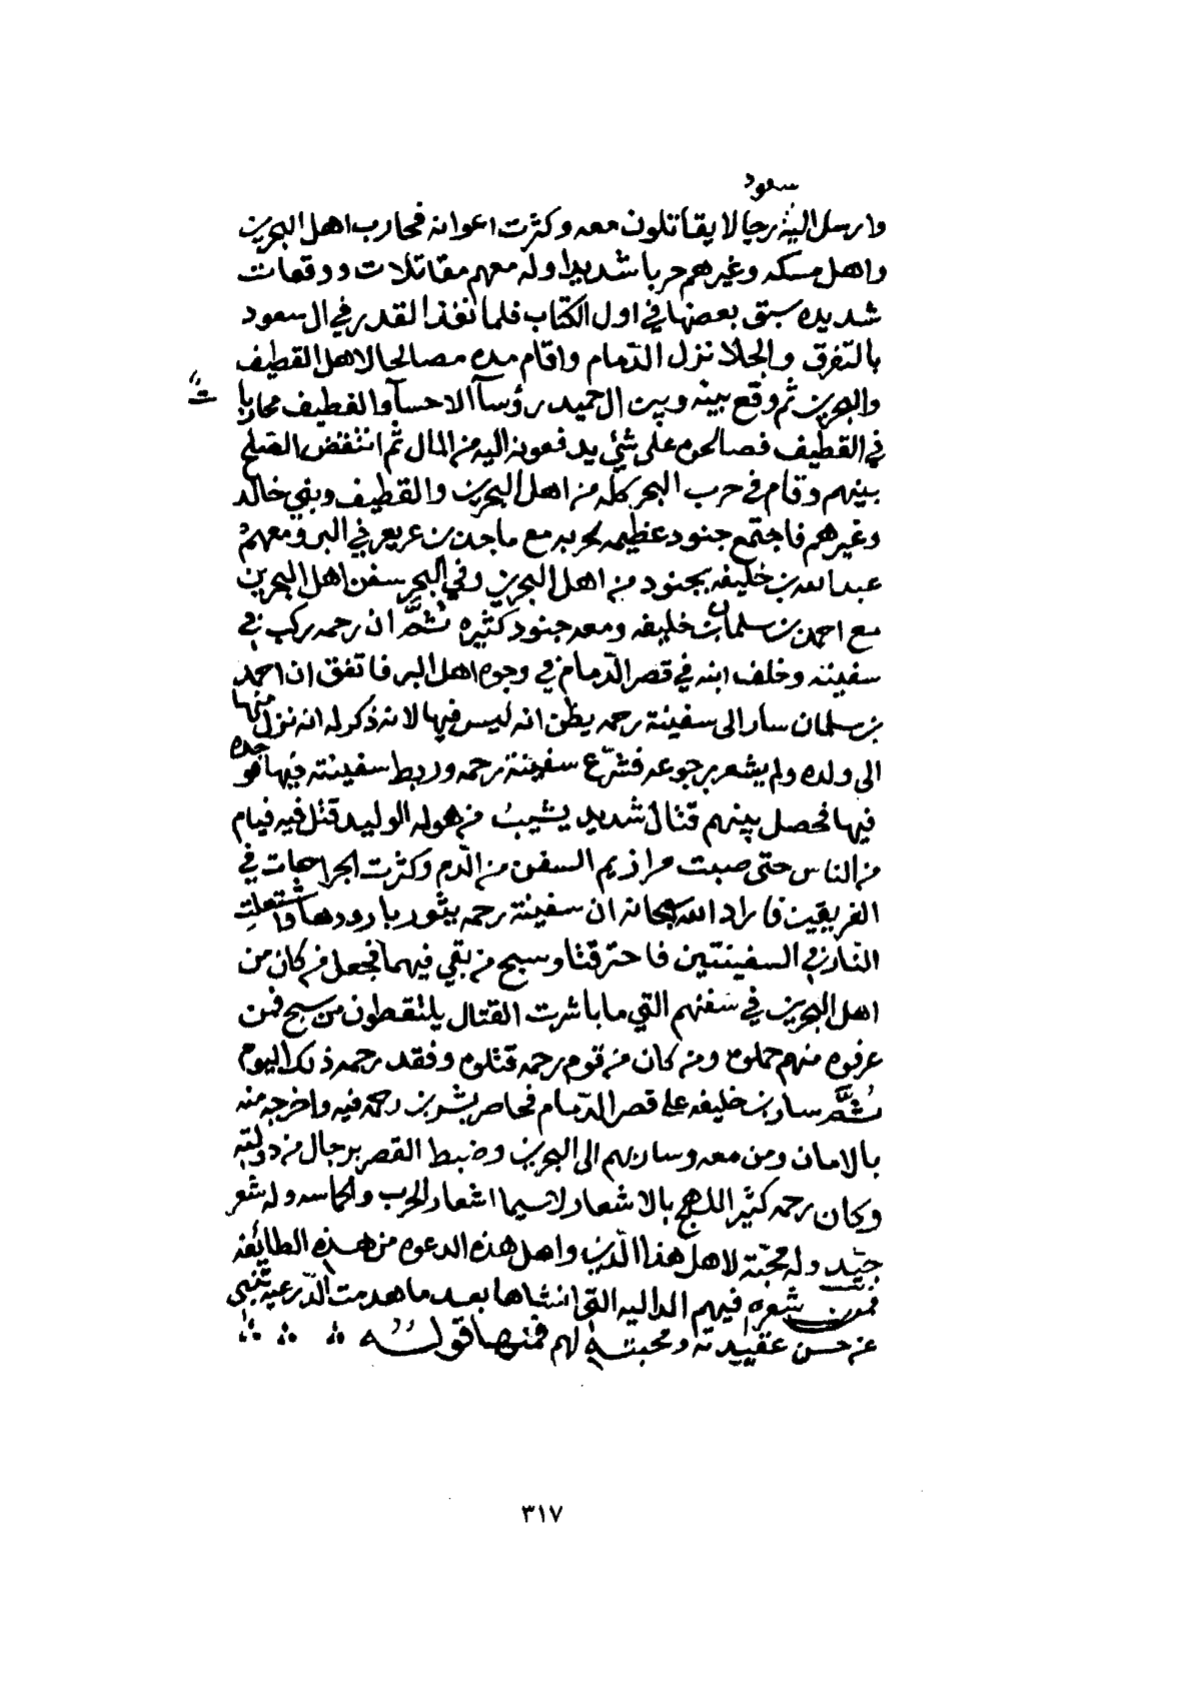 سعود
وارسل اليه رجالا يقاتلون معه وكثرت اعوانه فحارب اهل البحرين
واهل مسكه وغيرهم حربا شديدا وله معهم مقاتلات ووقعات
شديده سبق بعضها في اول الكتاب فلما نفذ القدر في ال سعود
بالتفرق والجلا نزل الدمام واقام مده مصالحا لاهل القطيف
والبحرين ثم وقع بينه وبين ال حميد رؤسآ الاحسآ والقطيف محاربات
في القطيف فصالحوه على شئي يدفعونه اليه من المال ثم انتقض الصلح
بينهم وقام في حرب البحر كله من اهل البحرين والقطيف وبني خالد
وغيرهم فاجتمع جنود عظيمه لحربه مع ماجد بن عريعر في البر ومعهم
عبدالله بن خليفه بجنود من اهل البحرين وفي البحر سفن اهل البحرين
مع احمد بن سلمان بن خليفه ومعه جنود كثيره ثُمَّ ان رحمه ركب في
سفينته وخلف ابنه في قصر الدّمام في وجوه اهل البر فاتفق ان احمد
بن سلمان سار الى سفينة رحمه يظن انه ليس فيها لانه ذكر له انه نزل منها
الى ولده ولم يشعر برجوعه فشرّع سفينة رحمه وربط سفينته فيها فوجده
فيها فحصل بينهم قتال شديد يشيبُ من هوله الوليد قتل فيه فيام
من الناس حتى صبت مرازيم السفن من الدّم وكثرت الجراحات في
الفريقين فاراد الله سبحانه ان سفينة رحمه يثور بارودها واشتعلت
النار في السفينتين فاحترقتا وسبح من بقي فيهما فجعل من كان من
اهل البحرين في سفنهم التي ما باشرت القتال يلتقطون من سبح فمن
عرفوه منهم حملوه ومن كان من قوم رحمه قتلوه وفقد رحمه ذلك اليوم
ثُمَّ سار بن خليفه على قصر الدّمام فحاصر بشر بن رحمه فيه واخرجه منه
بالامان ومن معه وسار بهم الى البحرين وضبط القصر برجال من دولته
وكان رحمه كثير اللهج بالاشعار لاسيما اشعار الحرب والحماسه وله شعر
جيّد وله محبّة لاهل هذا الدّين واهل هذه الدعوه من هذه الطائفه
فمن شعره فيهم الداليه التي انشاها بعد ما هدمت الدّرعيه تنبى
عن حسن عقيدته ومحبته لهم فمنها قوله
٣١٧